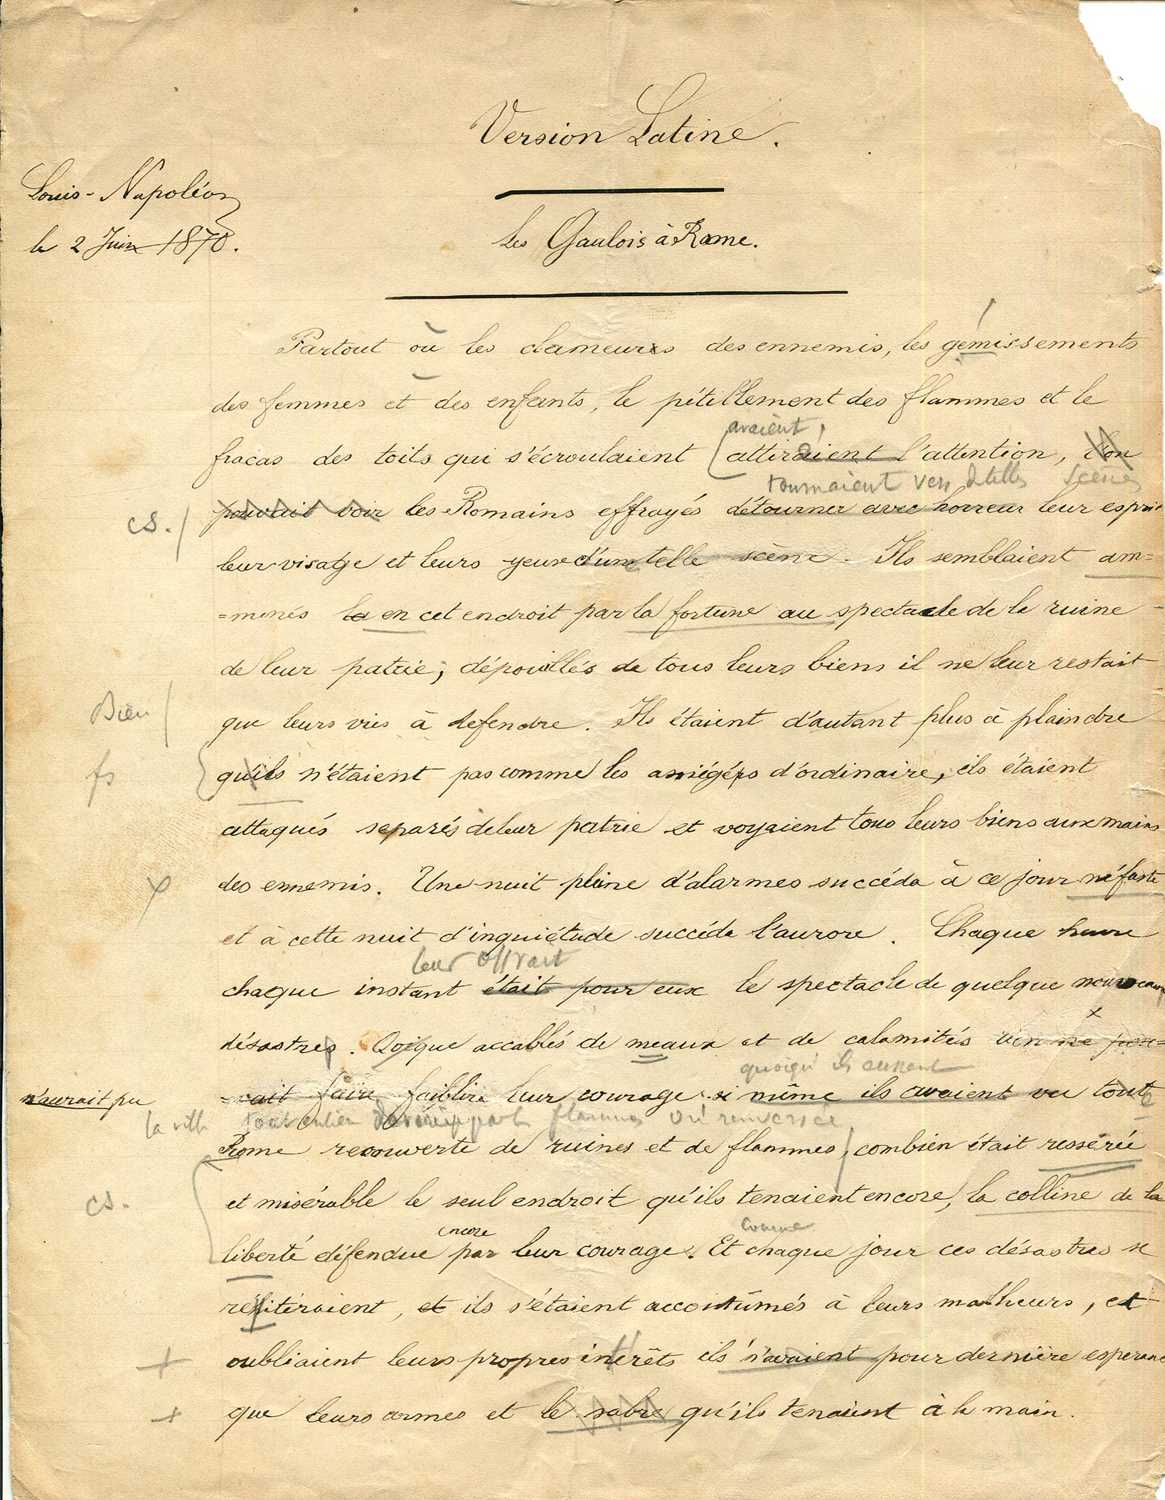 Version Latine.
Louis-Napoléon
le 2 Juin 1870.
Les Gaulois à Rome.
Partout où les clameurs des ennemis, les gémissements
des femmes et des enfants, le pétillement des flammes et le
avaient
fracas des toits qui s'écroulaient attiraient l'attention, l'on
tournaient vers de telles scènes
cs.
pouvait voir les Romains effrayés détourner avec horreur leur esprit
leur visage et leurs yeux d'une telle scène. Ils semblaient am=
=menés en cet endroit par la fortune au spectacle de la ruine
de leur patrie; dépouillés de tous leurs biens il ne leur restait
Bien
que leurs vies à défendre. Ils étaient d'autant plus à plaindre
fs
qu'ils n'étaient pas comme les assiégés d'ordinaire, ils étaient
attaqués separés de leur patrie et voyaient tous leurs biens aux mains
des ennemis. Une nuit pleine d'alarmes succéda à ce jour néfaste
et à cette nuit d'inquiétude succéda l'aurore. Chaque heure
leur offrait
chaque instant était pour eux le spectacle de quelque nouveau
désastre. Qoique accablés de meaux et de calamités rien ne pou=
quoiqu'ils eussent
n'aurait pu
=vait faire faiblir leur courage si même ils avaient vu toute
la ville tout entière flammes ou renversée
Rome recouverte de ruines et de flammes, combien était ressérée
cs.
et misérable le seul endroit qu'ils tenaient encore, la colline de la
encore
comme
liberté défendue par leur courage. Et chaque jour ces désastres se
réitéraient, et ils s'étaient accoutumés à leurs malheurs, et
oubliaient leurs propres intérêts ils n'avaient pour dernière esperance
que leurs armes et le sabre qu'ils tenaient à la main.